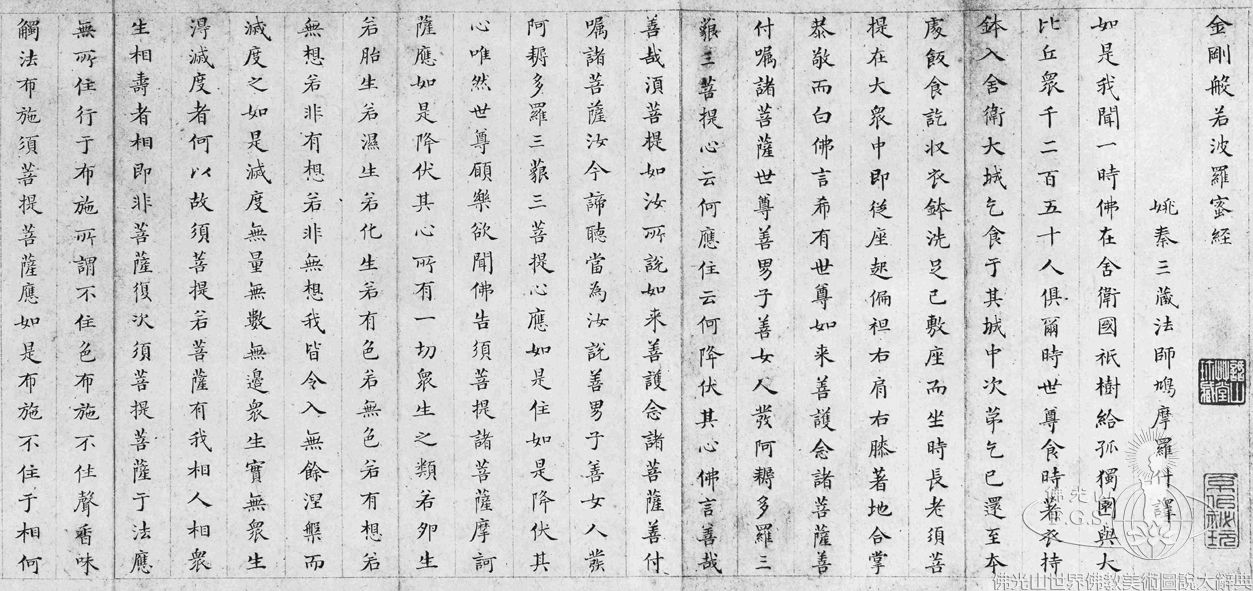 金剛般若波羅蜜經
姚秦三藏法師鳩摩羅什譯
如是我聞一時佛在舍衛國祇樹給孤獨園與大
比丘眾千二百五十人俱爾時世尊食時著衣持
鉢入舍衛大城乞食于其城中次第乞已還至本
處飯食訖収衣鉢洗足已敷座而坐時長老須菩
提在大眾中即從座起偏袒右肩右膝著地合掌
恭敬而白佛言希有世尊如来善護念諸菩薩善
付囑諸菩薩世尊善男子善女人發阿耨多羅三
藐三菩提心云何應住云何降伏其心佛言善哉
善哉須菩提如汝所說如来善護念諸菩薩善付
囑諸菩薩汝今諦聽當為汝說善男子善女人發
阿耨多羅三藐三菩提心應如是住如是降伏其
心唯然世尊願樂欲聞佛告須菩提諸菩薩摩訶
薩應如是降伏其心所有一切眾生之類若卵生
若胎生若濕生若化生若有色若無色若有想若
無想若非有想若非無想我皆令入無餘涅槃而
滅度之如是滅度無量無數無邊眾生實無眾生
得滅度者何以故須菩提若菩薩有我相人相眾
生相壽者相即非菩薩復次須菩提菩薩于法應
無所住行于布施所謂不住色布施不住聲香味
觸法布施須菩提菩薩應如是布施不住于相何
佛光山
F.G.S.
佛光山世界佛教美術圖說大辭典